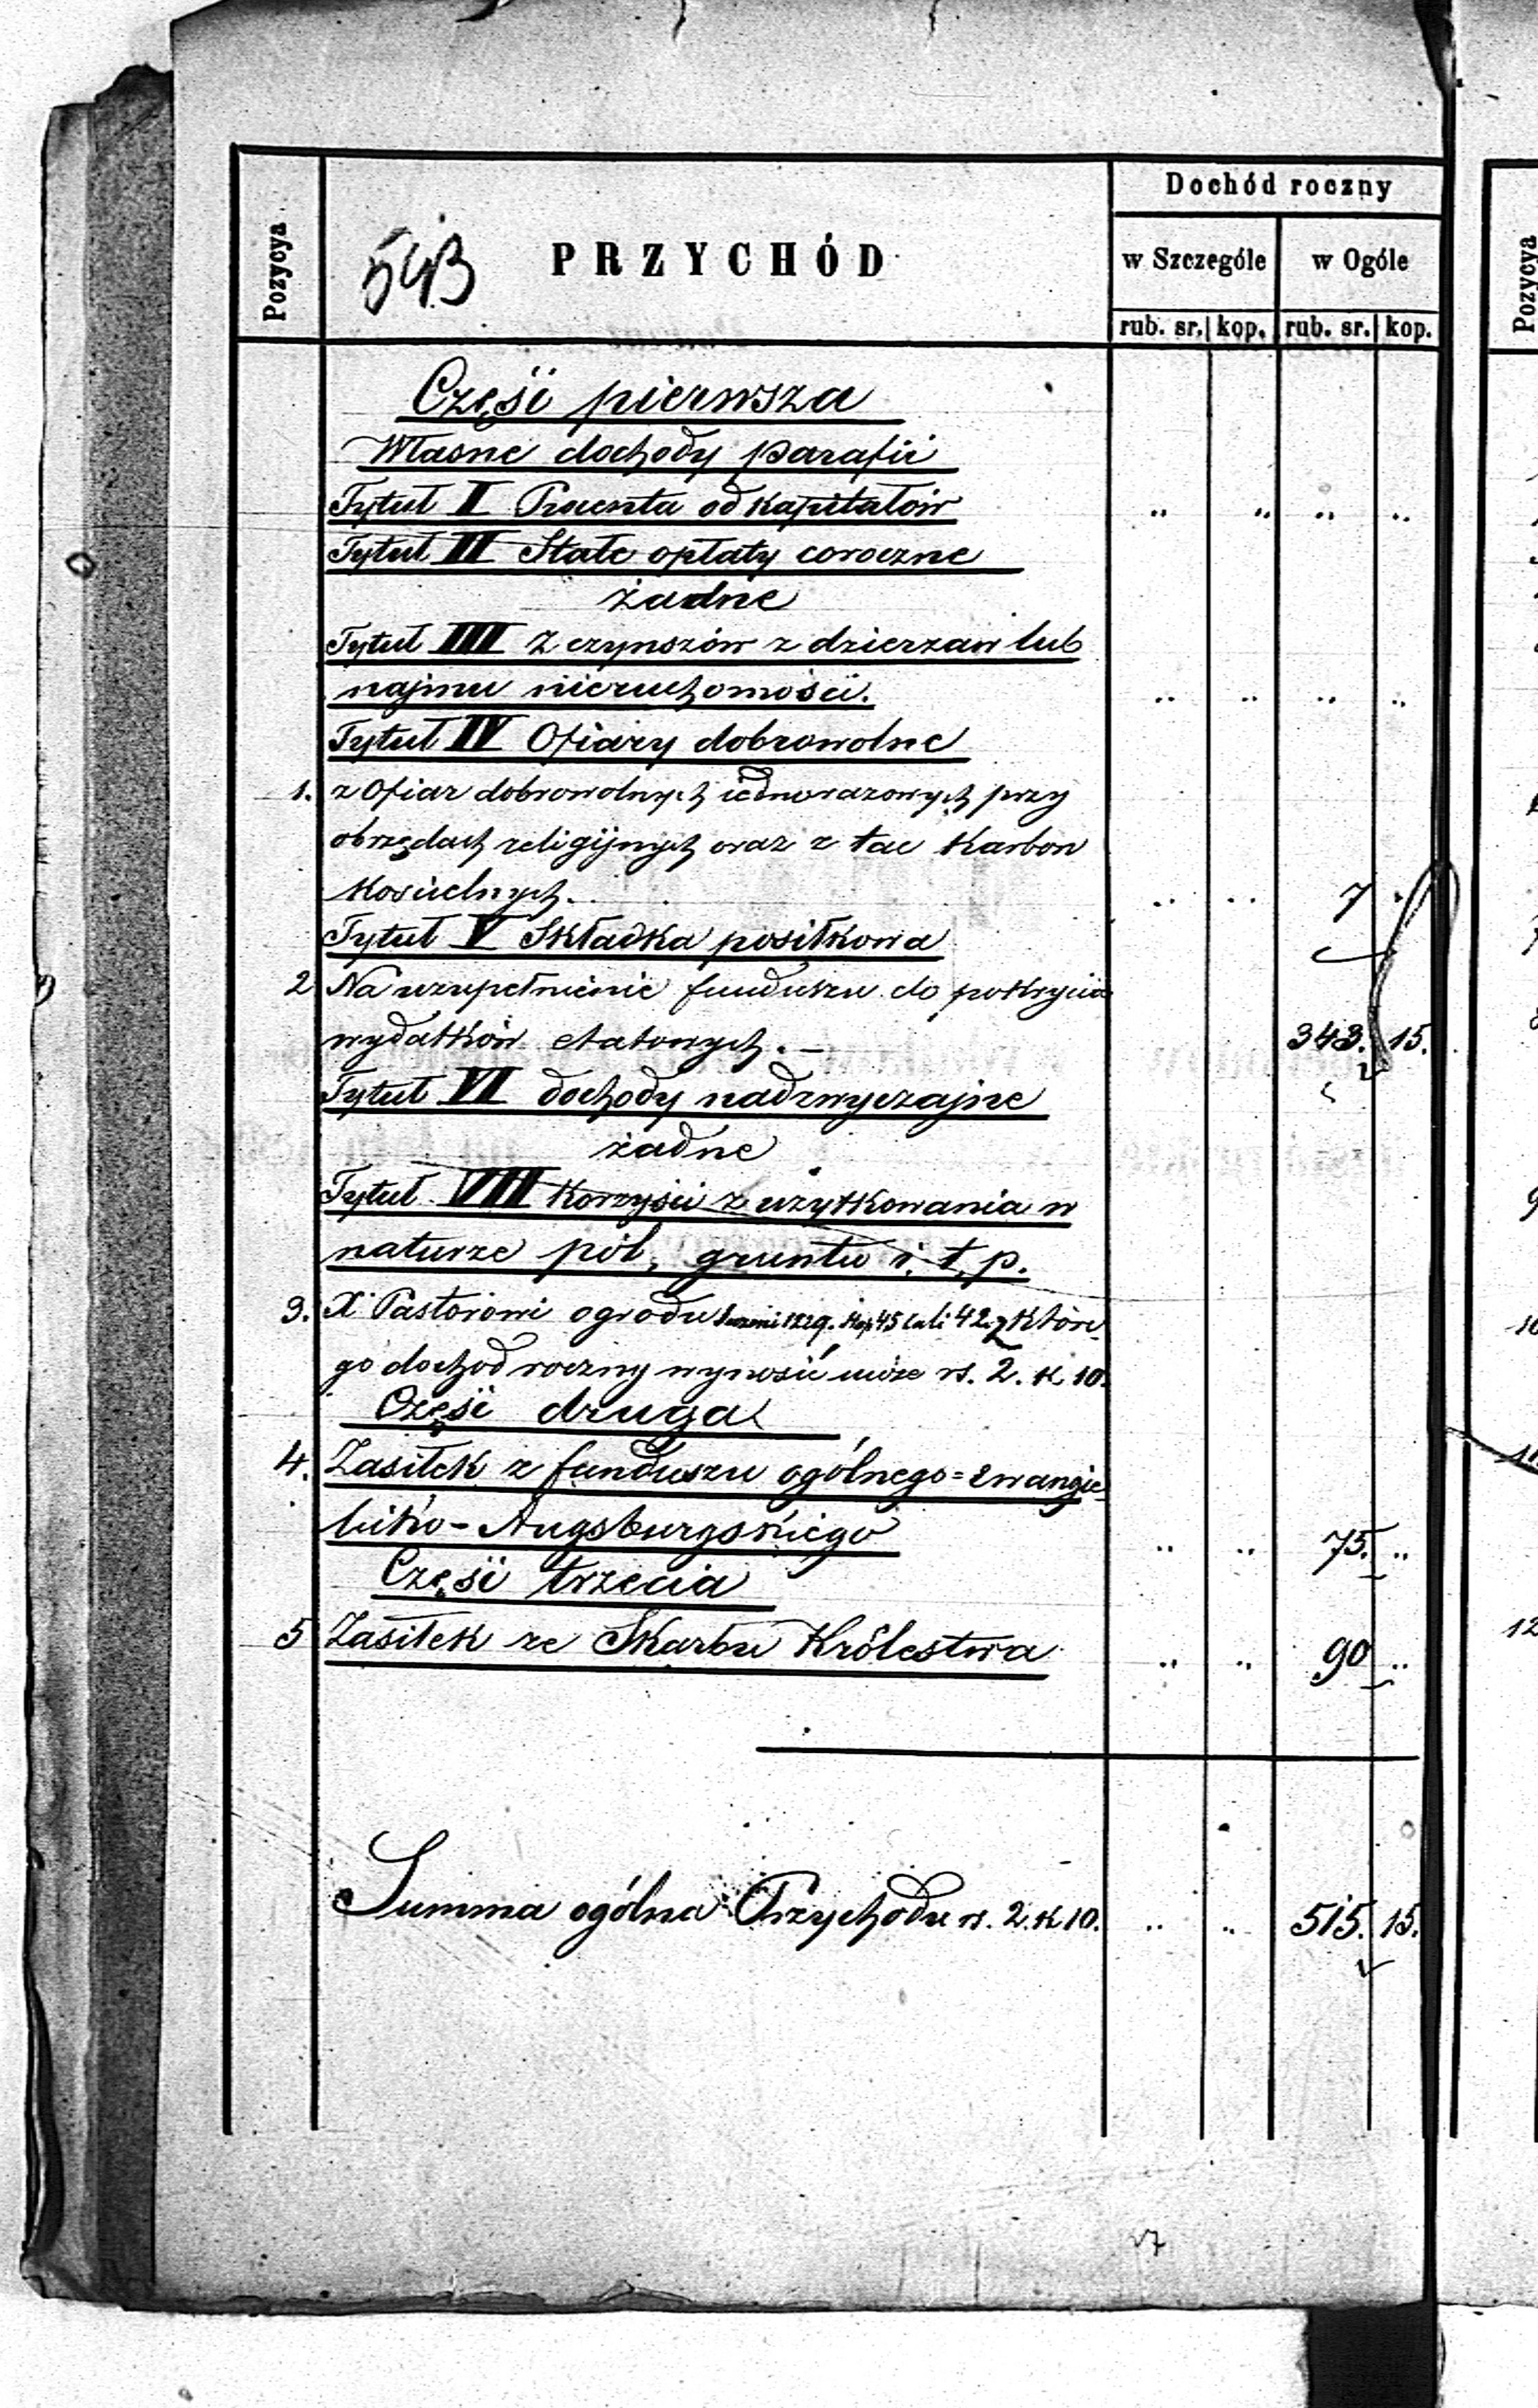 Dochód roczny
Pozycya
54B
PRZYCHÓD
w Szczególe
w Ogóle
Pozycya
rub. sr. kop. rub. sr. kop.
Części pierwsza
Własne dochody parafii
Tytuł I Procenta od kapitałów " " " "
Tytuł II Stałe opłaty coroczne
żadne
Tytuł III Z czynszów z dzierzaw lub
najmu nieruchomości. " " " "
Tytuł IV Ofiary dobrowolne
1. z Ofiar dobrowolnych iednorazowych przy
obrzędach religijnych oraz z tac Karbon
Kościelnych. " " 7
Tytuł V Składka posiłkowa
2 Na uzupełnienie funduszu do pokrycia
wydatków etatowych. — 343. 15.
Tytuł VI dochody nadzwyczajne
żadne
Tytuł VII Korzyści z użytkowania w
naturze pól, gruntu i. t. p.
3. X Pastorowi ogrodu 45 cali 42 z które
go dochód roczny wynosić może rs. 2. k 10.
Części druga
4. Zasiłek z funduszu ogólnego = Ewangie
licko - Augsburgskiego " " 75. "
Części trzecia
5 Zasiłek ze Skarbu Królestwa " " 90 "
Summa ogólna Przychodu rs. 2. k 10. " " 515. 15.